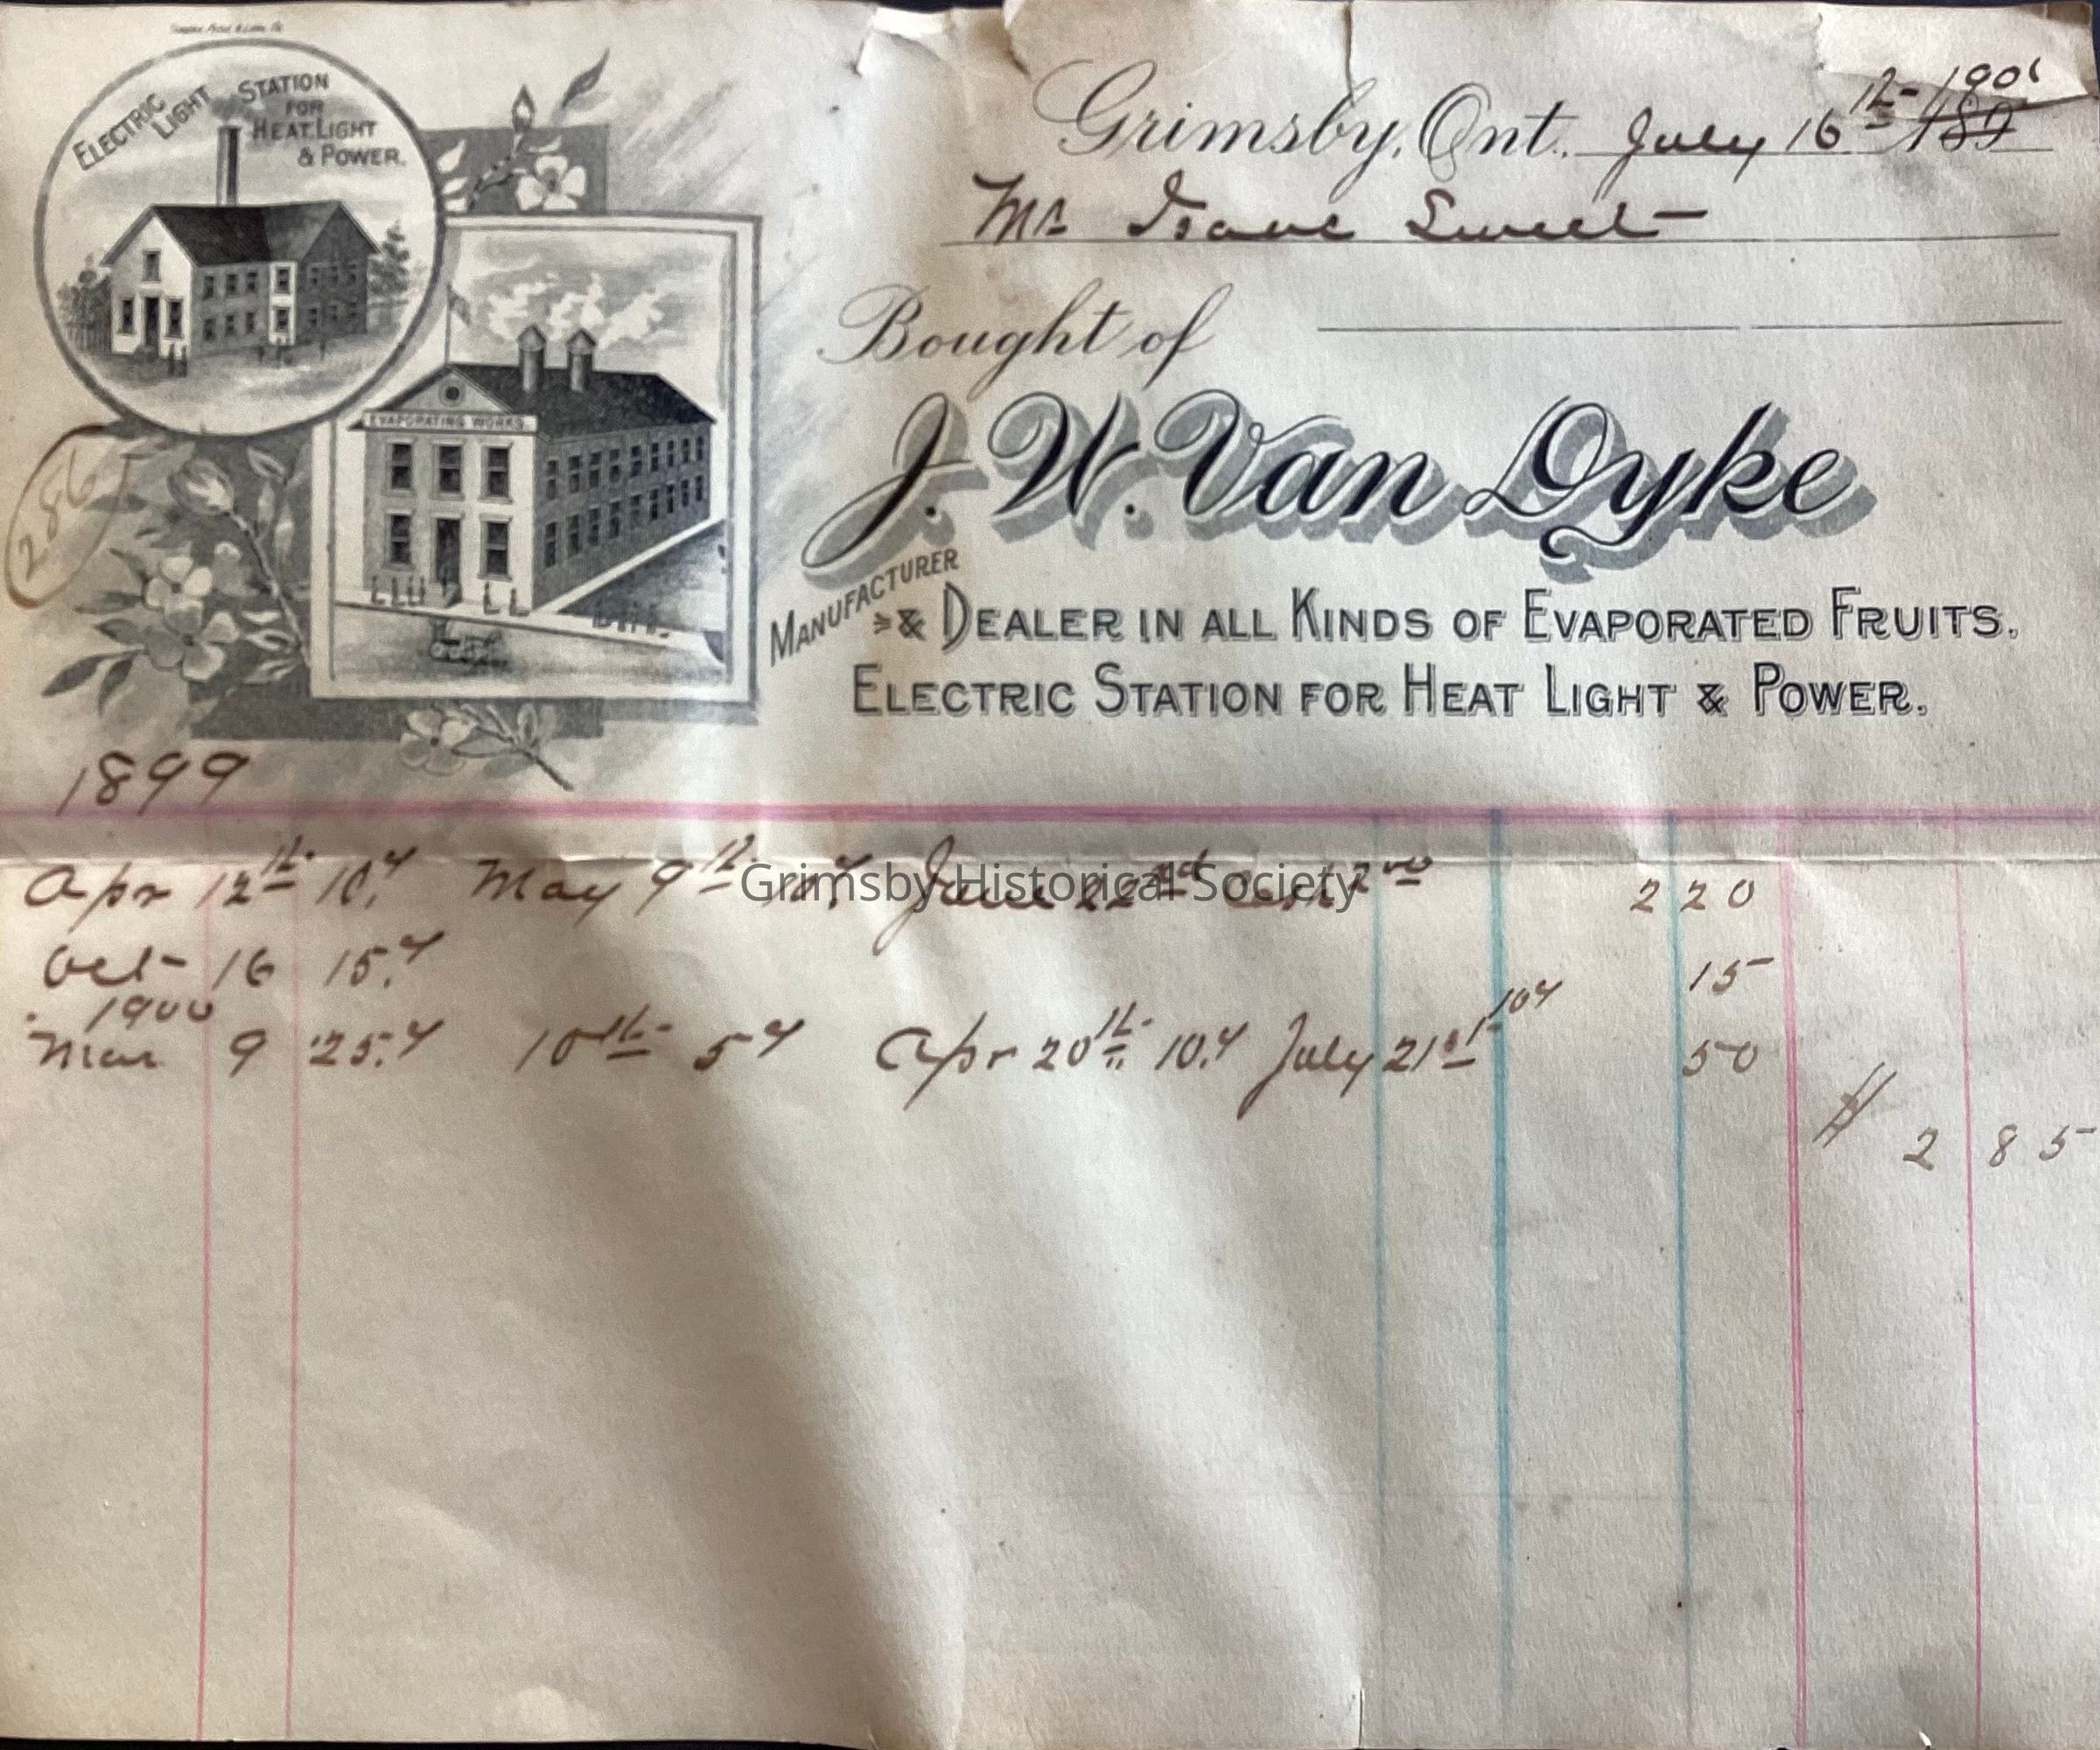 ELECTRIC LIGHT STATION
FOR
HEAT, LIGHT
& POWER.
EVAPORATING WORKS
286
Grimsby, Ont., July 16th 1901
189
Mr Isaac Sweet
Bought of
J. W. Van Dyke
MANUFACTURER
& DEALER IN ALL KINDS OF EVAPORATED FRUITS.
ELECTRIC STATION FOR HEAT LIGHT & POWER.
1899
Apr 12th 10.¢ May 9th 10.¢ June 22nd cash 2.00 2 20
Grimsby Historical Society
Oct 16 15.¢ 15
1900
Mar 9 25.¢ 10th 5¢ Apr 20th 10.¢ July 21st 10¢ 50
# 2 85